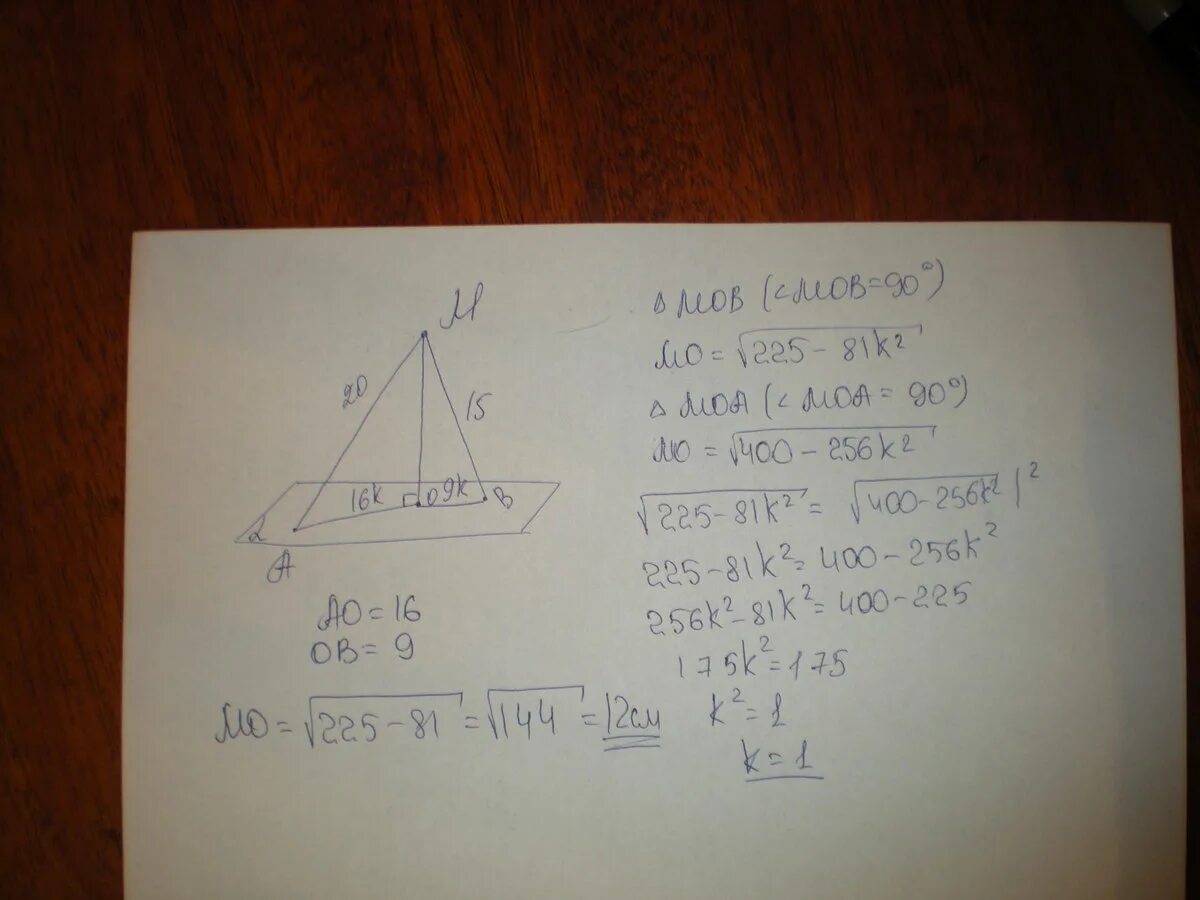 M
20
15
16k
O
9k
B
α
A
AO = 16
OB = 9
MO = √225 - 81 = √144 = 12см
△ MOB (<MOB=90°)
MO = √225 - 81k²
△ MOA (<MOA = 90°)
MO = √400 - 256k²
√225 - 81k² = √400 - 256k² |²
225 - 81k² = 400 - 256k²
256k² - 81k² = 400 - 225
175k² = 175
k² = 1
k = 1